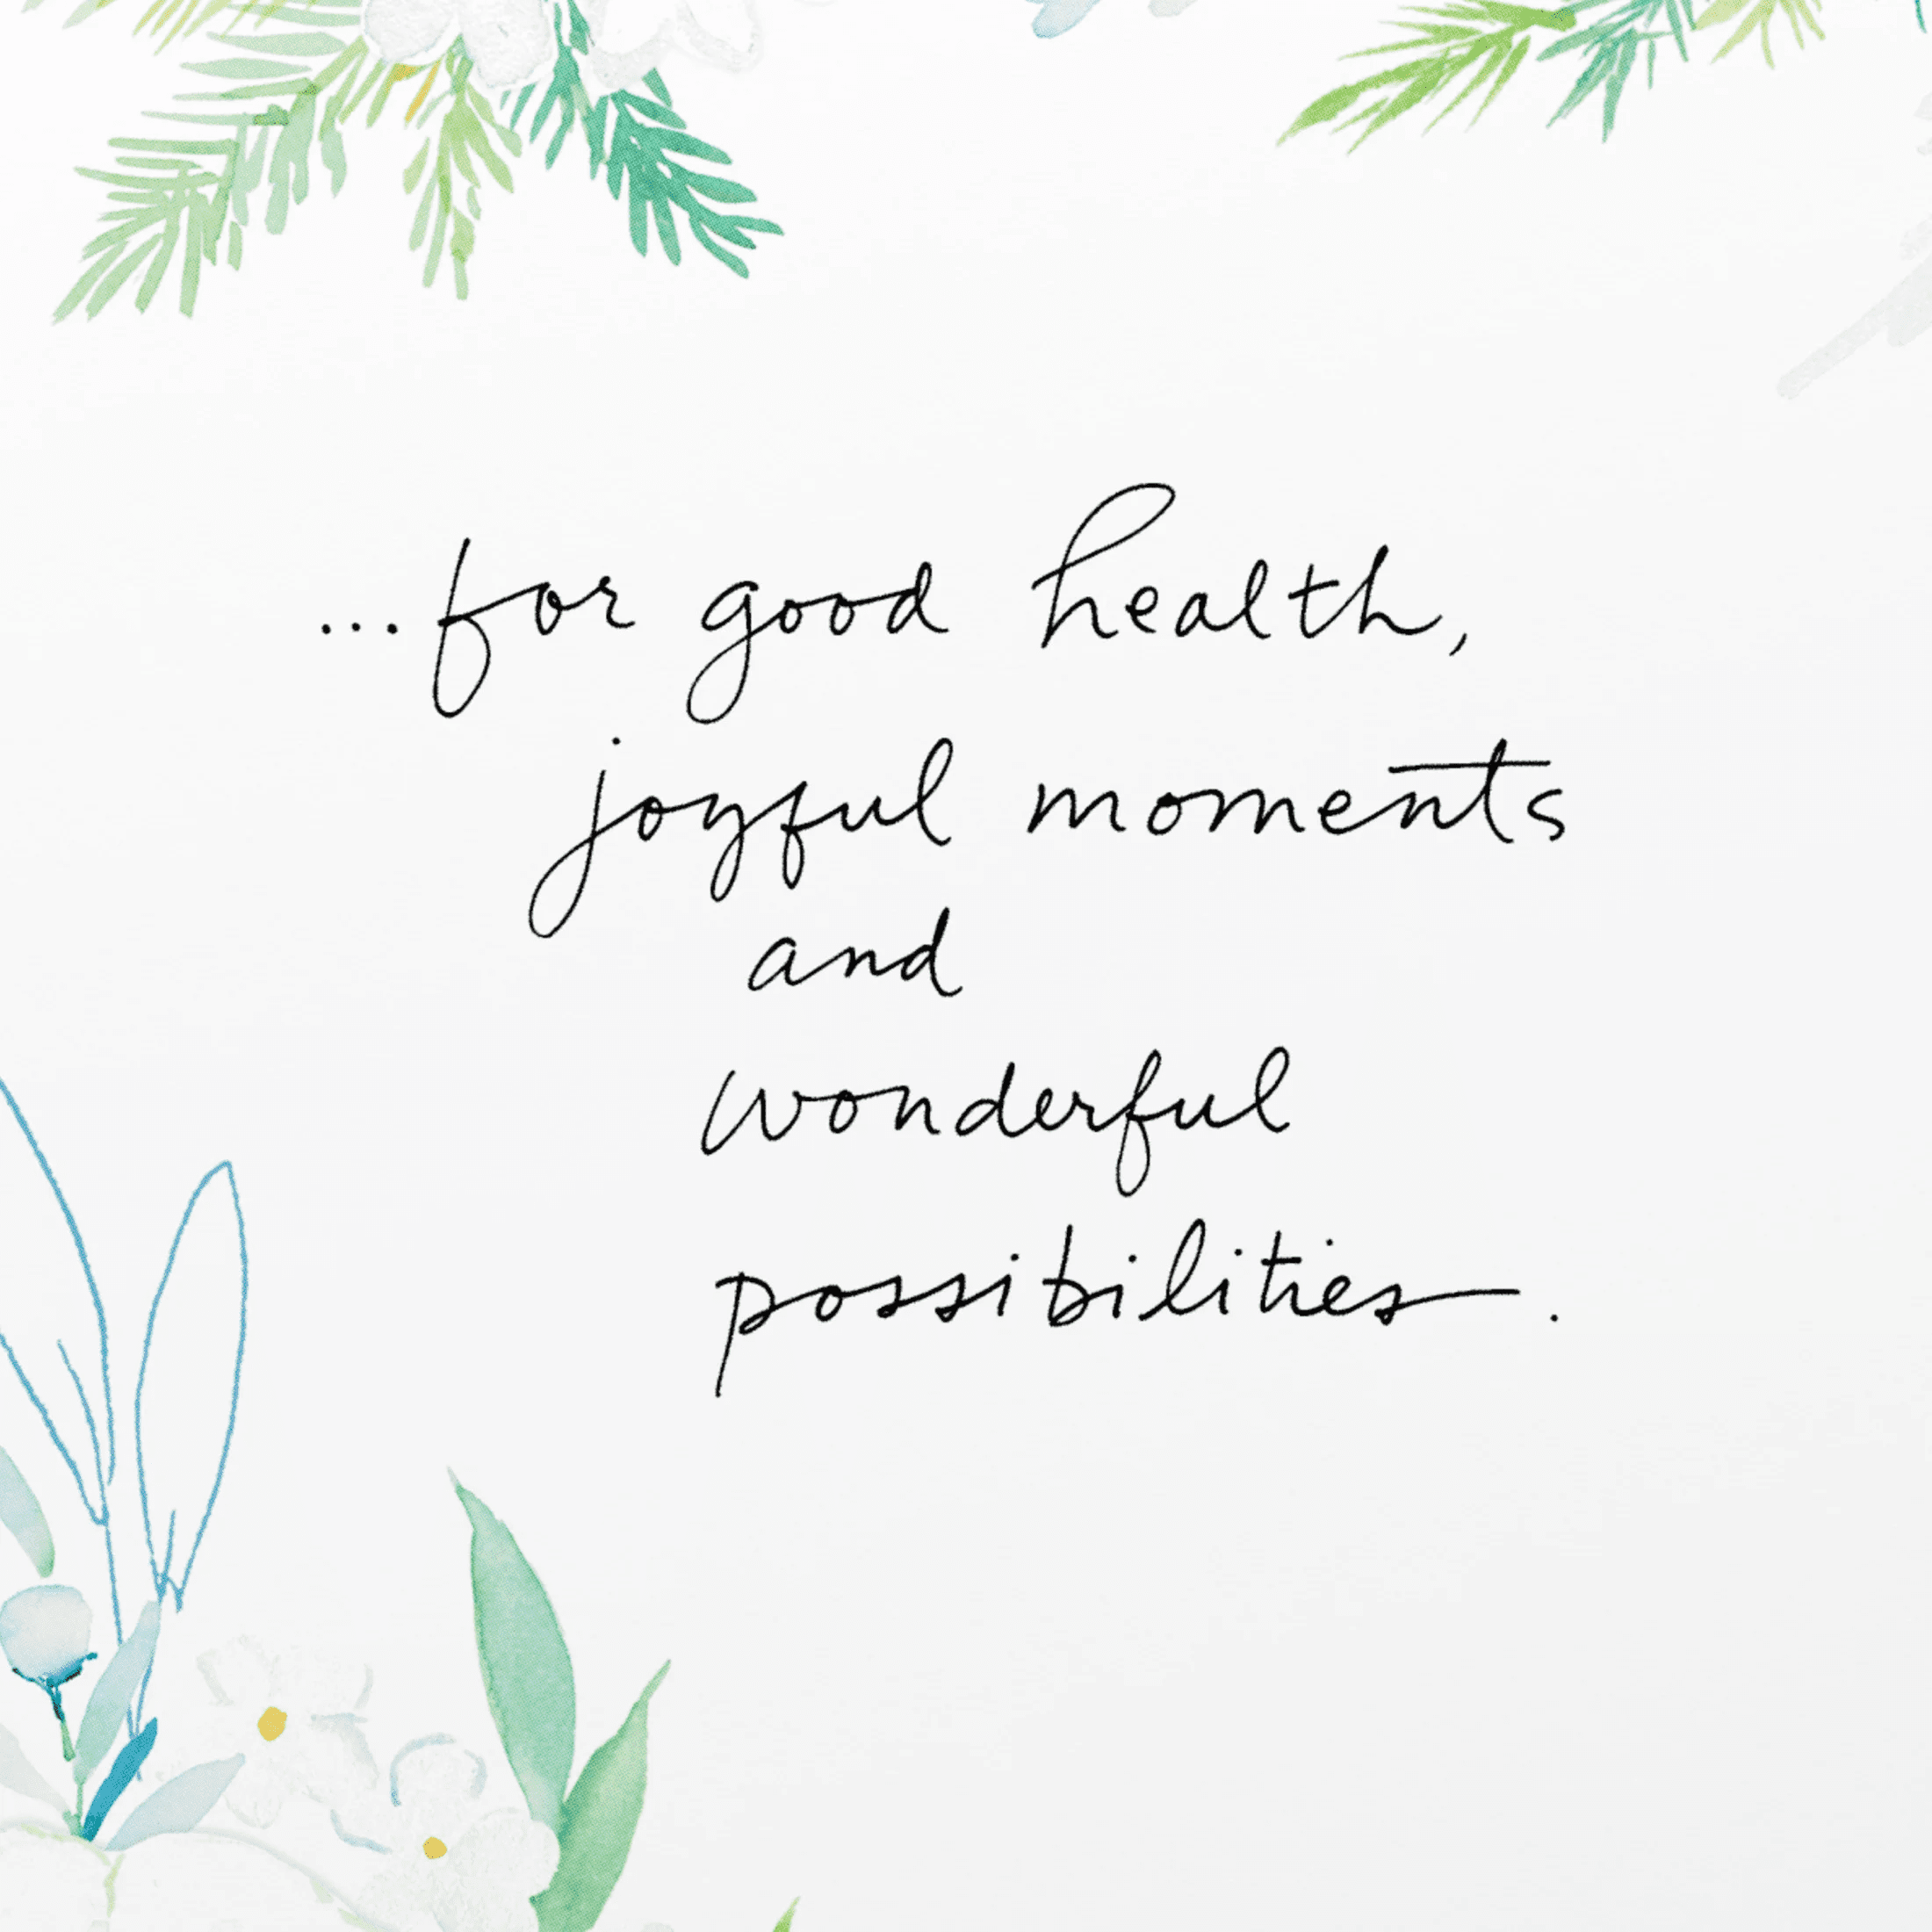 ...for good health,
joyful moments
and
wonderful
possibilities.